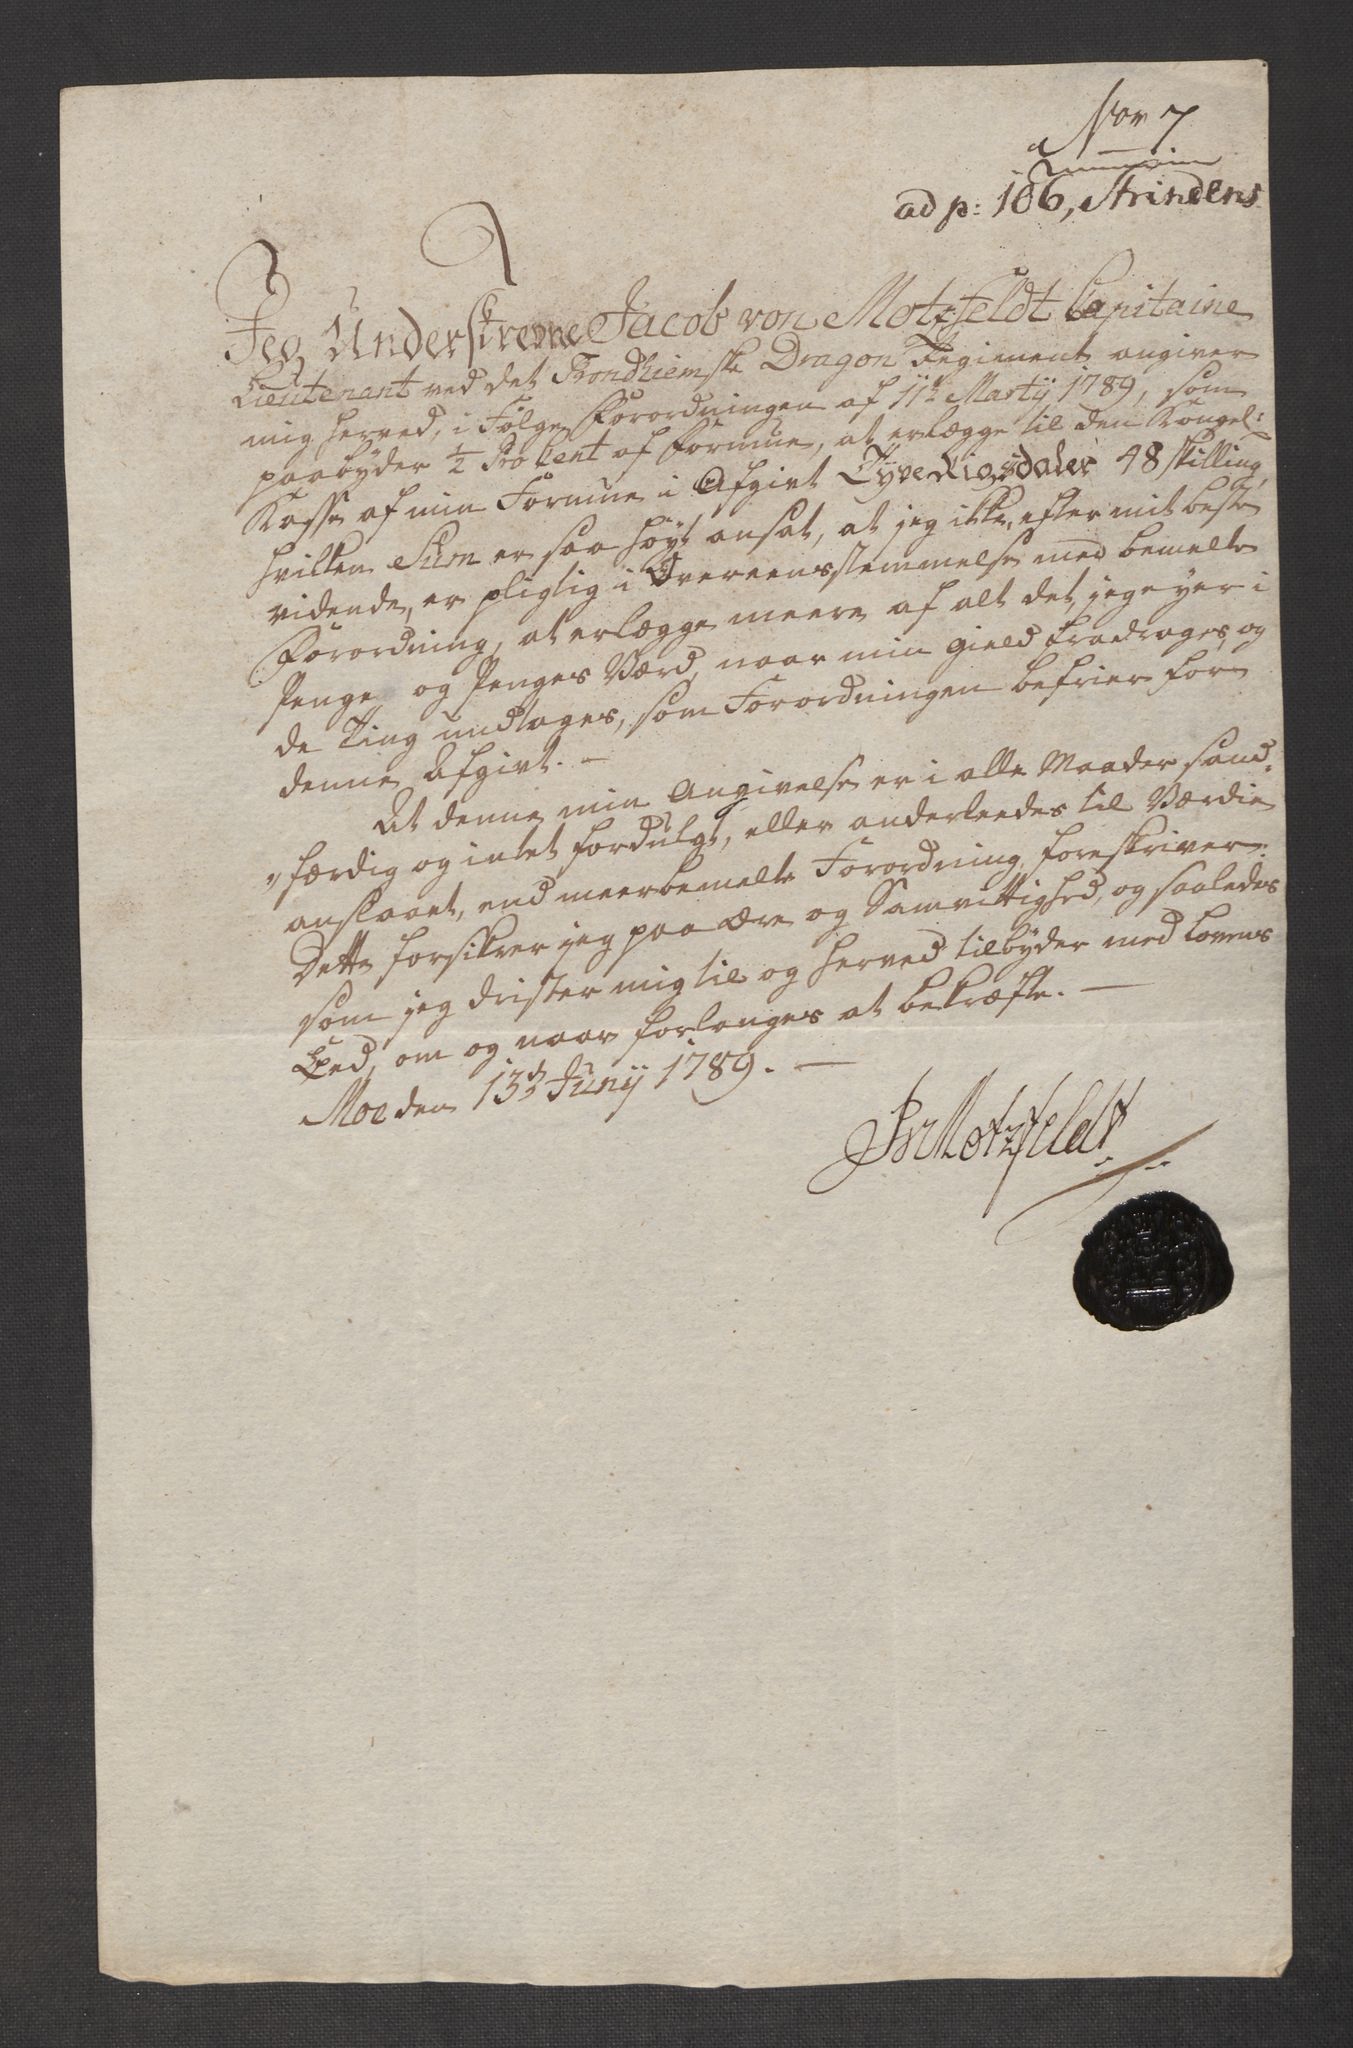 Nor 7
ad p: 106, Strindens
Jeg Underskrevne Jacob von Motzfeldt Capitaine
Lieutenant ved det Trondhiemske Dragon Regiement angiver
mig herved, i Følge Forordningen af 11te Martij 1789, som
paabyder 1/2 Pro Cent af Formue, at erlægge til den Kongel:
Kasse af min Formue i Afgivt Tyve Rigsdaler 48 skilling,
hvilken Sum er saa høyt ansat, at jeg ikke, efter mit beste
vidende, er pligtig i Overeensstemmelse med bemelte
Forordning, at erlægge meere af alt det, jeg eyer i
Penge og Penges Værd, naar min Gield fradrages, og
de Ting undtages, som Forordningen befrier for
denne Afgivt. –
At denne min Angivelse er i alle Maader sand-
"færdig og intet fordulgt, eller anderleedes til Værdie
anslaaet, end meerbemelte Forordning foreskriver:
Dette forsikrer jeg paa Ære og Samvittighed, og saaledes
som jeg drister mig til og herved tilbyder med Lovens
Eed, om og naar forlanges at bekræfte. –
Moe den 13de Junij 1789. –
JvMotzfeldt